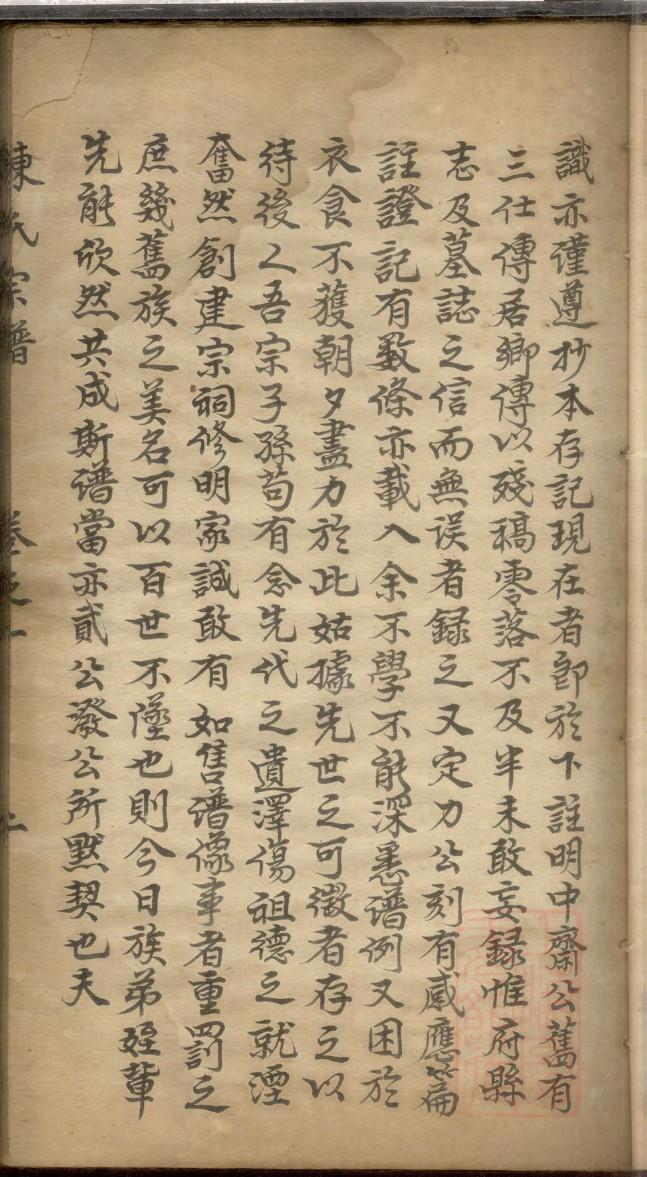 識亦謹遵抄本存記現在者即於下註明中齋公舊有
三仕傳居鄉傳以殘稿零落不及半未敢妄録惟府縣
志及墓誌之信而無误者録之又定力公刻有感應篇
註證記有數條亦載入余不學不能深悉譜例又困於
衣食不獲朝夕盡力於此姑據先世之可徵者存之以
待後之吾宗子孫苟有念先代之遺澤傷祖德之就湮
奮然創建宗祠修明家誡敢有如售譜像事者重罰之
庶幾舊族之美名可以百世不墜也則今日族弟姪輩
先能欣然共成斯譜當亦貳公潑公所默契也夫
氏宗譜 卷之一